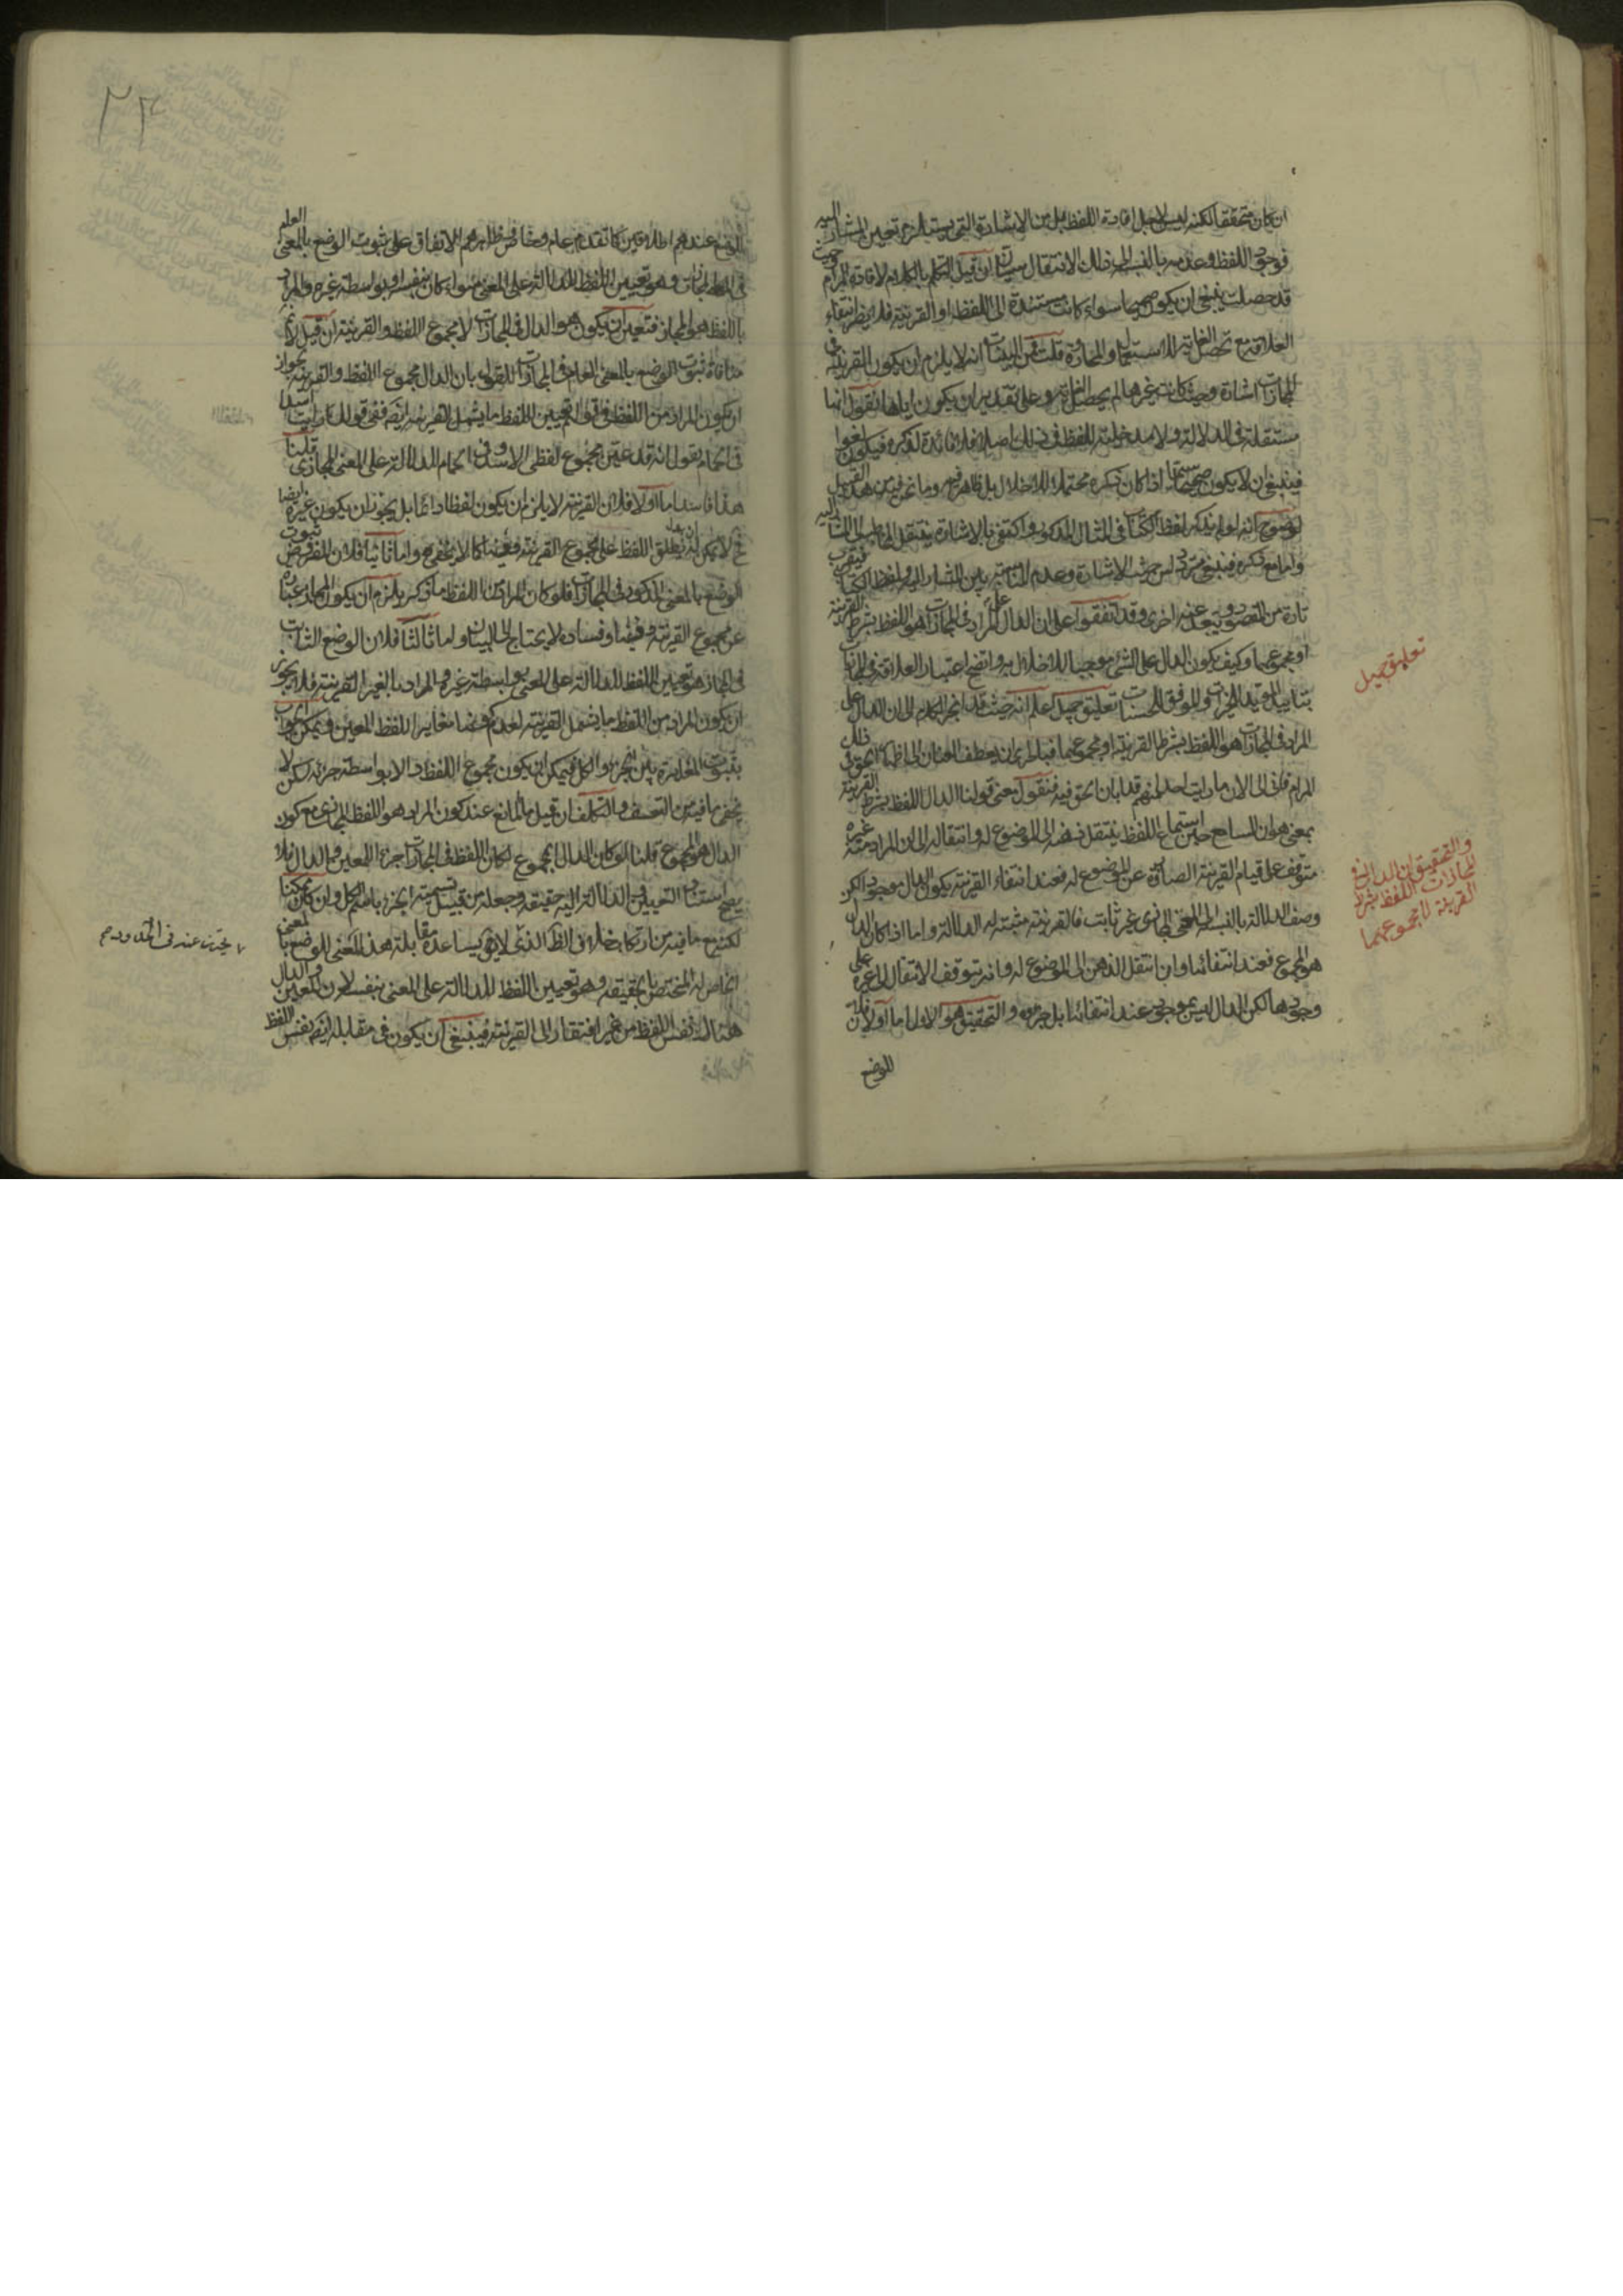 ان كان متحققا لكنه ليس لاجل افادة اللفظ بل من الاشارة التي يستلزم تعيين المشار اليه
فوجود اللفظ وعدمه بالنسبة الى ذلك الانتقال سيان ان قيل التكلم بالكلام لافادة المرام حيث
قد حصلت ينبغي ان يكون صحيحا سواء كانت مستندة الى اللفظ او القرينة فلا يضر انتفاء
العلاقة مع تحصل الغاية للاستعمال والمحاورة قلت من البينات انه لا يلزم ان يكون القرينة في
المجازات اشارة وحيث كانت غيرها لم يحصل الغاية وعلى تقدير ان يكون اياها نقول انها
مستقلة في الدلالة ولا مدخلية للفظ في ذلك اصلا فلا فائدة لذكره فيكون لغوا
فينبغي ان لا يكون صحيحا سيما اذا كان ذكره محتملا للاخلال بل ظاهر فيه وما نحن فيه من هذا القبيل
لوضوح انه لو لم يذكر لفظ الكتاب في المثال المذكور واكتفى بالاشارة ينتقل المخاطب الى المشار اليه
واما مع ذكره فينبغي متردد من حيث الاشارة وعدم المناسبة بين المشار اليه ولفظ الكتاب فيقرب
تارة من المقصود ويبعد عنه اخرى وقد اتفقوا على ان الدال على المراد في المجازات هو اللفظ بشرط القرينة
او مجموعهما وكيف يكون الدال على الشيء موجبا للاخلال به واتضح اعتبار العلاقة في المجازات
بتاييد المؤيد للخيرات والموفق للحسنات تعليق جميل اعلم انه حيث قد انجر الكلام الى ان الدال على
المراد في المجازات هو اللفظ بشرط القرينة او مجموعهما فبالحري ان يعطف العنان الى اظهار الحق في ذلك
المرام فاني الى الان ما رايت احدا منهم قد ابان الحق فيه فنقول معنى قولنا الدال اللفظ بشرط القرينة
بمعنى هو ان السامع حين استماع اللفظ ينتقل ذهنه الى الموضوع له وانتقاله الى ان المراد منه غيره
متوقف على قيام القرينة الصارفة عن الموضوع له فعند انتفاء القرينة يكون الدال موجودا لكن
وصف الدلالة بالنسبة الى المعنى المجازي غير ثابت فالقرينة مثبتة له الدلالة واما اذا كان الدال
هو المجموع فعند انتفائها وان انتقل الذهن الى الموضوع له وانه يتوقف الانتقال الى غيره على
وجودها لكن الدال ليس بموجود عند انتفائها بل جزؤه والتحقيق هو الاول اما اولا فلان
للوضع
تعليق جميل
والتحقيق ان الدال في
المجازات اللفظ بشرط
القرينة لا مجموعهما
٢٣
الوضع عندهم اطلاقين كما تقدم عام وخاص وظاهرهم الاتفاق على ثبوت الوضع بالمعنى العام
في المجازات وهو تعيين اللفظ للدلالة على المعنى سواء كان بنفسه او بواسطة غيره والمراد
باللفظ هو المجاز فتعين ان يكون هو الدال في المجازات لا مجموع اللفظ والقرينة ان قيل لا نم
منافاة ثبوت الوضع بالمعنى العام في المجازات للقول بان الدال مجموع اللفظ والقرينة لجواز
ان يكون المراد من اللفظ في قولهم تعيين اللفظ ما يشمل القرينة ايضا ففي قولك رايت اسدا
في الحمام يقول انه قد عين مجموع لفظي الاسد وفي الحمام للدلالة على المعنى المجازي قلنا
هذا فاسد اما اولا فلان القرينة لا يلزم ان يكون لفظا دائما بل يجوز ان يكون غيره ايضا
فح لا يمكن ان يطلق اللفظ على مجموع القرينة وغيرها كما لا يخفى واما ثانيا فلان المفروض ثبوت
الوضع بالمعنى المذكور في المجازات فلو كان المراد من اللفظ ما ذكر يلزم ان يكون المجاز عبارة
عن مجموع القرينة وغيرها وفساده لا يحتاج الى البيان واما ثالثا فلان الوضع الثابت
في المجاز هو تعيين اللفظ للدلالة على المعنى بواسطة غيره والمراد بالغير القرينة فلا يجوز
ان يكون المراد من اللفظ ما يشمل القرينة لعدم كونها مغايرا للفظ المعين ويمكن الجواب
بثبوت المغايرة بين الجزء والكل فيمكن ان يكون مجموع اللفظ دالا بواسطة جزئه لكن لا
يخفى ما فيه من التعسف والتكلف ان قيل ما المانع عند كون المراد هو اللفظ المجازي مع كون
الدال هو المجموع قلنا لو كان الدال المجموع لكان اللفظ في المجازات جزء المعين والدال فلا
يصح استناد التعيين والدلالة اليه حقيقة وجعله من قبيل تسمية الجزء باسم الكل وان كان ممكنا
لكنه مع ما فيه من ارتكاب خلاف الظاهر الذي لا يساعده مقابلة هذا المعنى للوضع بالمعنى
الخاص له المختص بالحقيقة وهو تعيين اللفظ للدلالة على المعنى بنفسه لان المعين والدال
هنا لك نفس اللفظ من غير افتقار الى القرينة فينبغي ان يكون في مقابله ايضا نفس اللفظ
يحترز عنه في الحدود